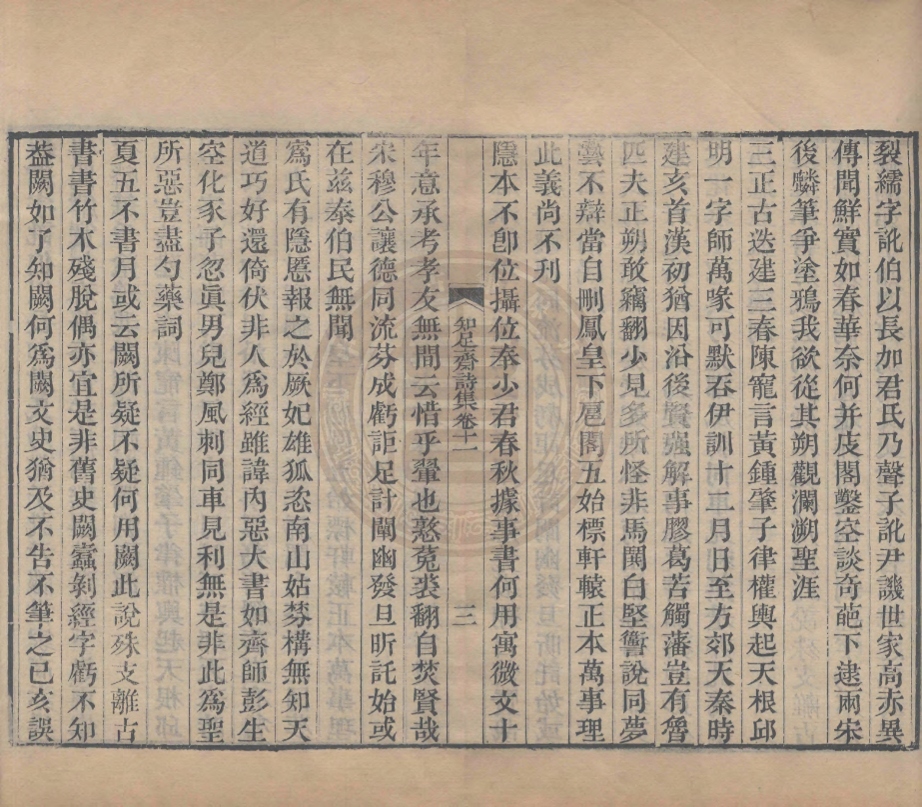 裂繻字訛伯以長加君氏乃聲子訛尹譏世家高赤異
傳聞鮮實如春華奈何并庋閣鑿空談奇葩下逮兩宋
後麟筆爭塗鴉我欲從其朔觀瀾溯聖涯
三正古迭建三春陳寵言黃鍾肇子律權輿起天根邱
明一字師萬喙可默吞伊訓十二月日至方郊天秦時
建亥首漢初猶因沿後賢强解事膠葛苦觸藩豈有魯
匹夫正朔敢竊翻少見多所怪非馬闃白堅讏說同夢
囈不辯當自刪鳳皇下巵閣五始標軒轅正本萬事理
此義尚不刊
隱本不卽位攝位奉少君春秋據事書何用寓微文十
知足齋詩集卷十一 三
年意承考孝友無間云惜乎翬也憝菟裘翻自焚賢哉
宋穆公讓德同流芬成虧詎足計闡幽發旦昕託始或
在茲泰伯民無聞
寪氏有隱慝報之於厥妃雄狐恣南山姑棼構無知天
道巧好還倚伏非人爲經雖諱內惡大書如齊師彭生
空化豕子忽眞男兒鄭風刺同車見利無是非此爲聖
所惡豈盡勺藥詞
夏五不書月或云闕所疑不疑何用闕此說殊支離古
書書竹木殘脫偶亦宜是非舊史闕蠹剝經字虧不知
葢闕如了知闕何爲闕文史猶及不告不筆之己亥誤